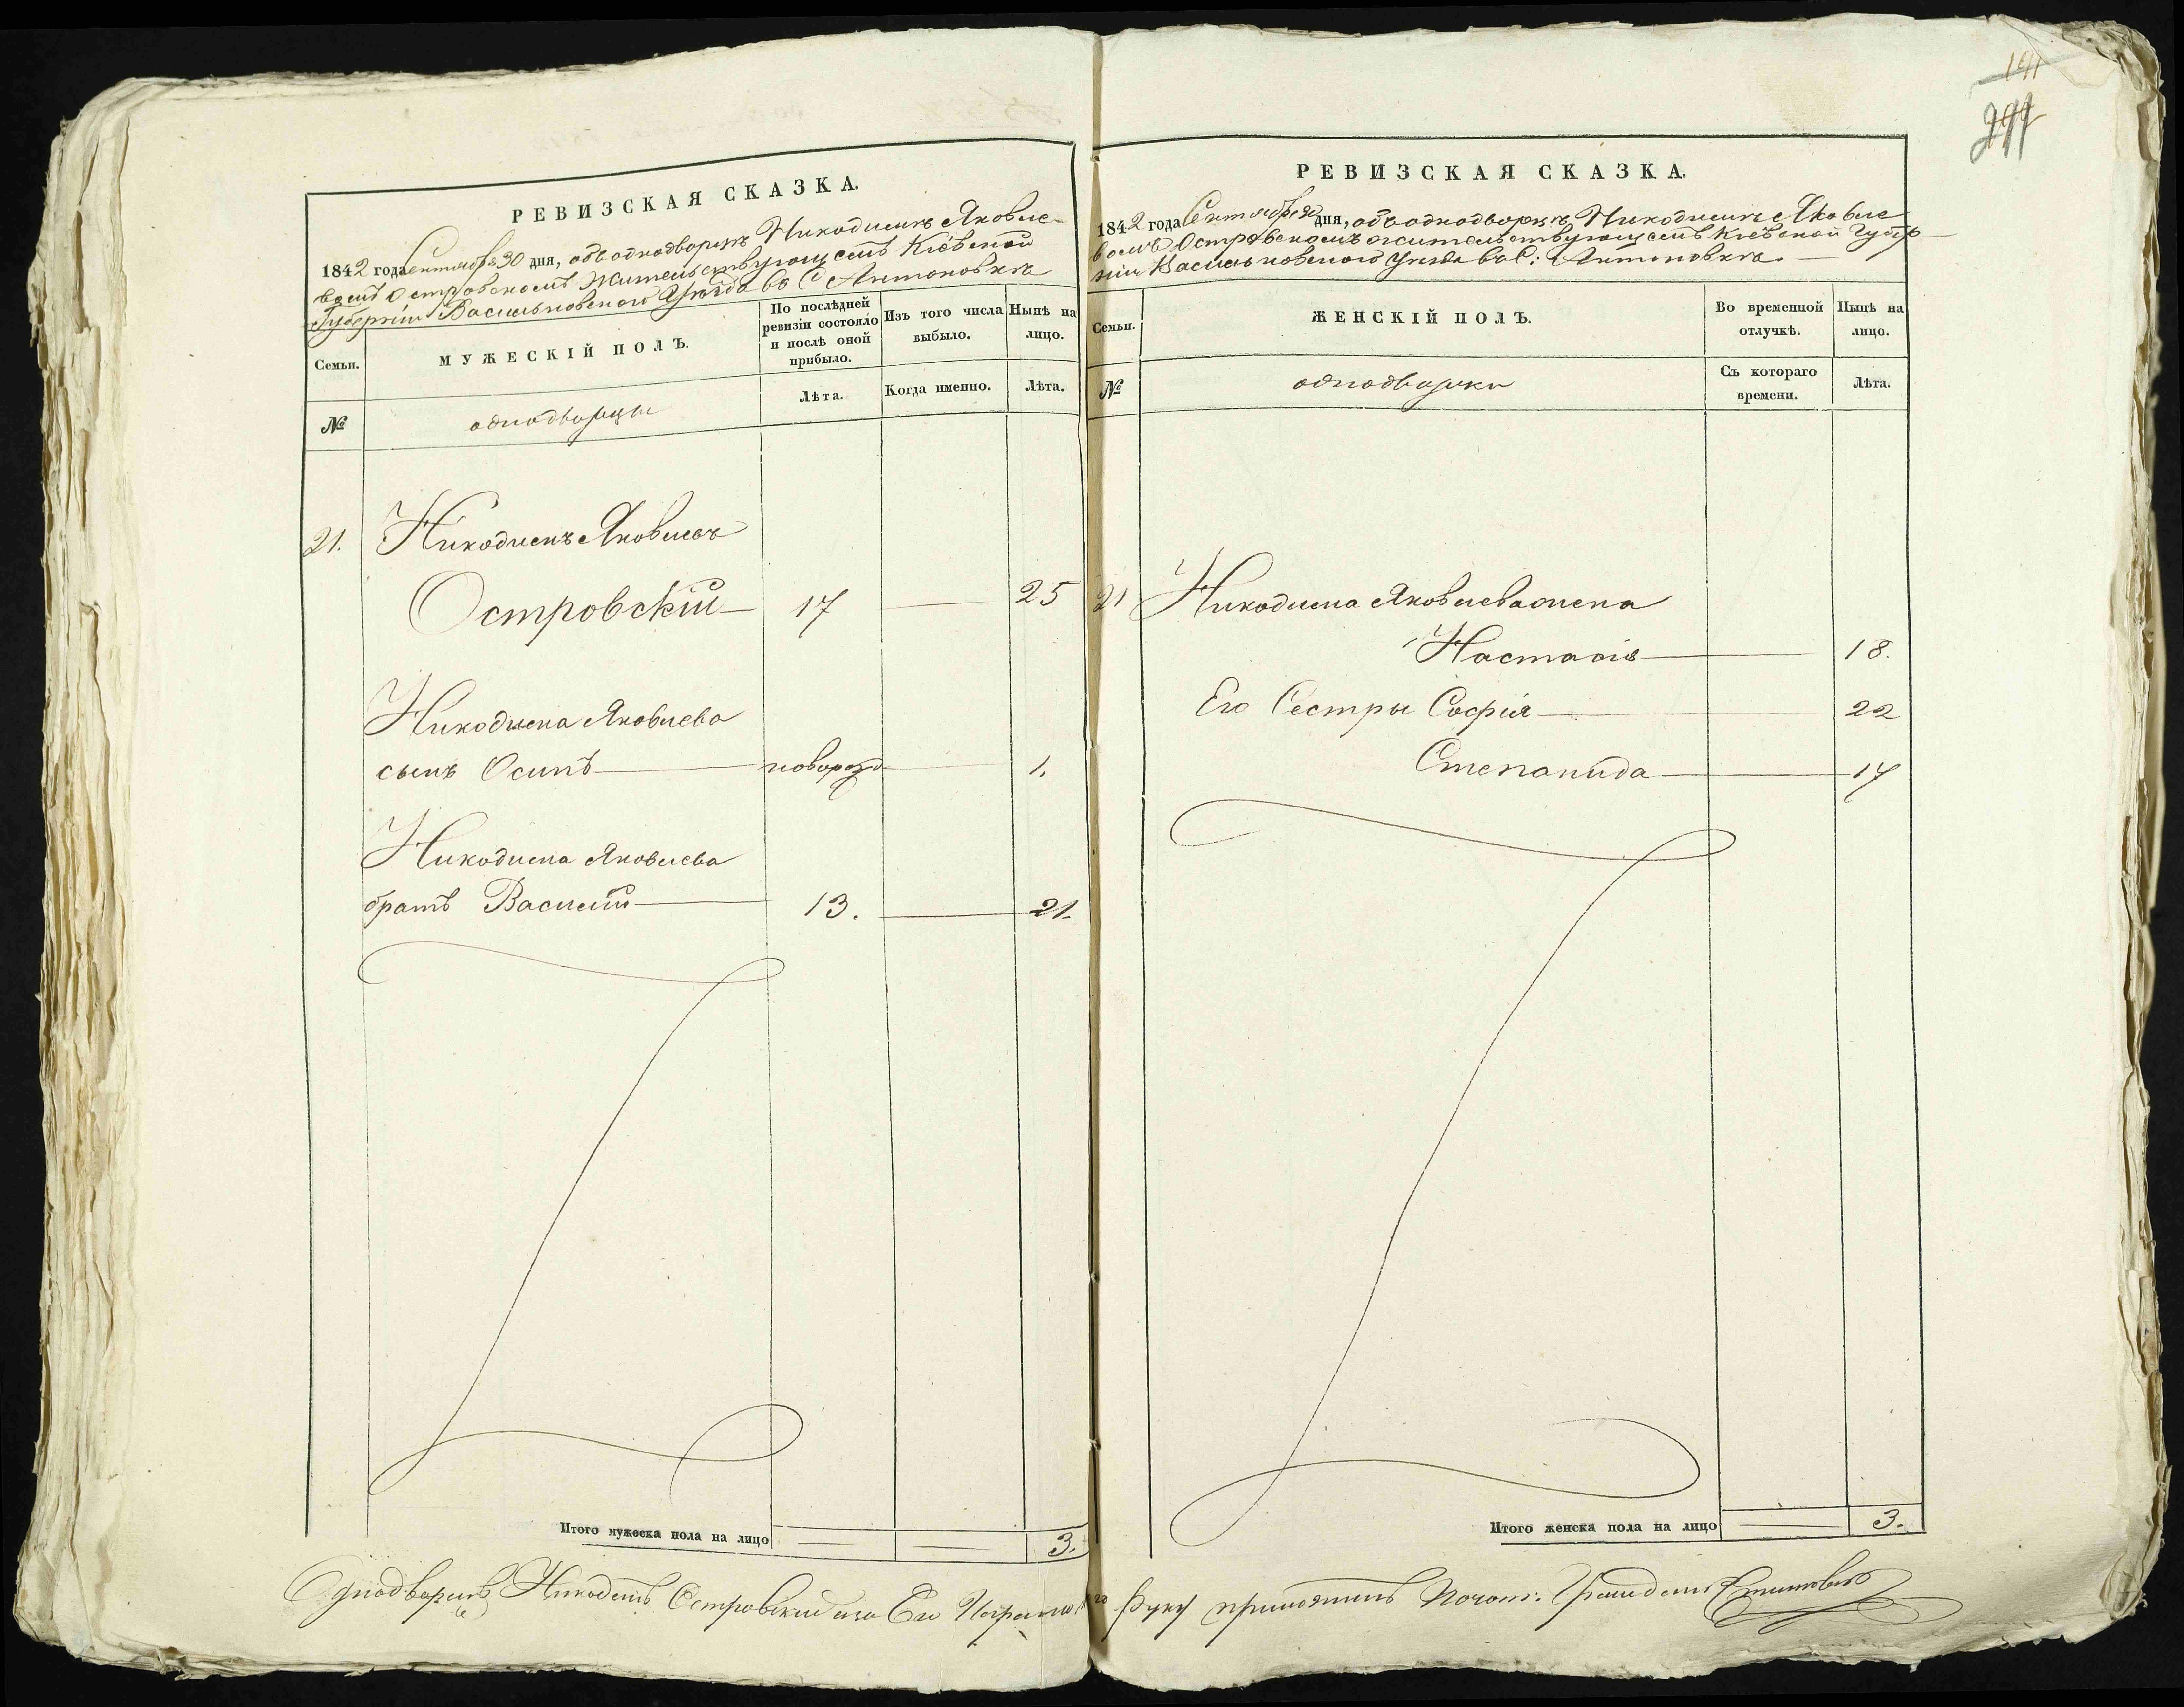 РЕВИЗСКАЯ СКАЗКА.
1842 года Сентября 30 дня, объ однодворцѣ Никодимѣ Яковле-
вомъ Островскомъ жительствующемъ Кіевской
Губерніи Васильковского Уѣзда въ С Антоновкѣ
Семьи.
МУЖЕСКІЙ ПОЛЪ.
По послѣдней ревизіи состояло и послѣ оной прибыло.
Изъ того числа выбыло.
Нынѣ на лицо.
№
однодворцы
Лѣта.
Когда именно.
Лѣта.
21. Никодимъ Яковлевъ
Островскій 17 25
Никодима Яковлева
сынъ Осипъ новорожд 1.
Никодима Яковлева
братъ Василій 13. 21.
Итого мужеска пола на лицо 3.
РЕВИЗСКАЯ СКАЗКА.
1842 года Сентября 30 дня, объ однодворцѣ Никодимѣ Яковле
вомъ Островскомъ жительствующемъ Кіевской Губер
ніи Васильковского Уѣзда въ С: Антоновкѣ
Семьи.
ЖЕНСКІЙ ПОЛЪ.
Во временной отлучкѣ.
Нынѣ на лицо.
№
однодворки
Съ котораго времени.
Лѣта.
21 Никодима Яковлева жена
Настасія 18.
Его Сестры Софія 22
Степанида 17
Итого женска пола на лицо 3.
Однодворецъ Никодемъ Островскій а за Его Неграмот
руку приложилъ Почот: